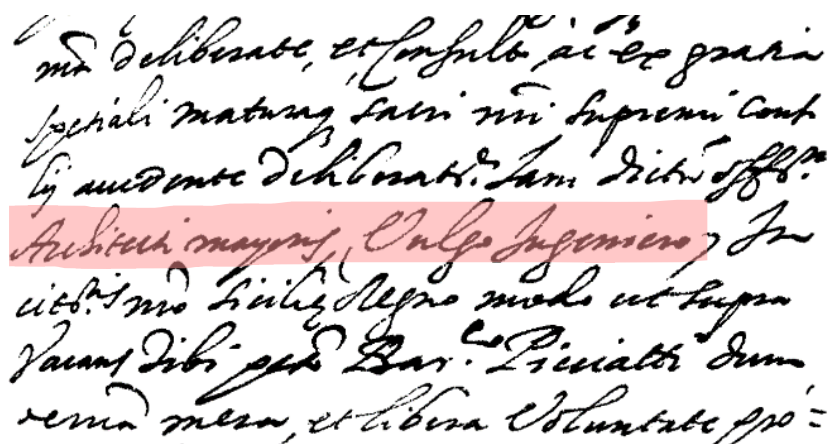 mã deliberate, et Consulto, ac ex gratia
spetiali maturaq sacri nr̃i supremi Cons
lij accedente deliberatᵉ. Jam dictũ offᵐ
Architecti mayoris, Vulgo Ingeniero, In
citᵗⁱˢ nr̃o sicilię Regno modo ut supra
Vacans tibi Barᵉᵒ. Picciatti dum
mera, et libera Voluntate pro=